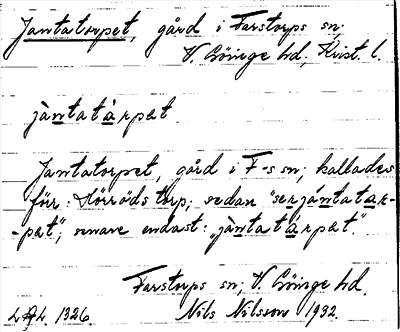 Jantatorpet, gård i Farstorps sn;
V. Göinge hd, Krist. l.
jàntatårpet.
Jantatorpet, gård i F-s sn; kallades
förr: Hörröds torp, sedan "serjántatår-
-pet"; senare endast: jàntatårpet."
Farstorps sn; V. Göinge hd.
Nils Nilsson 1932.
LAL. 1326.